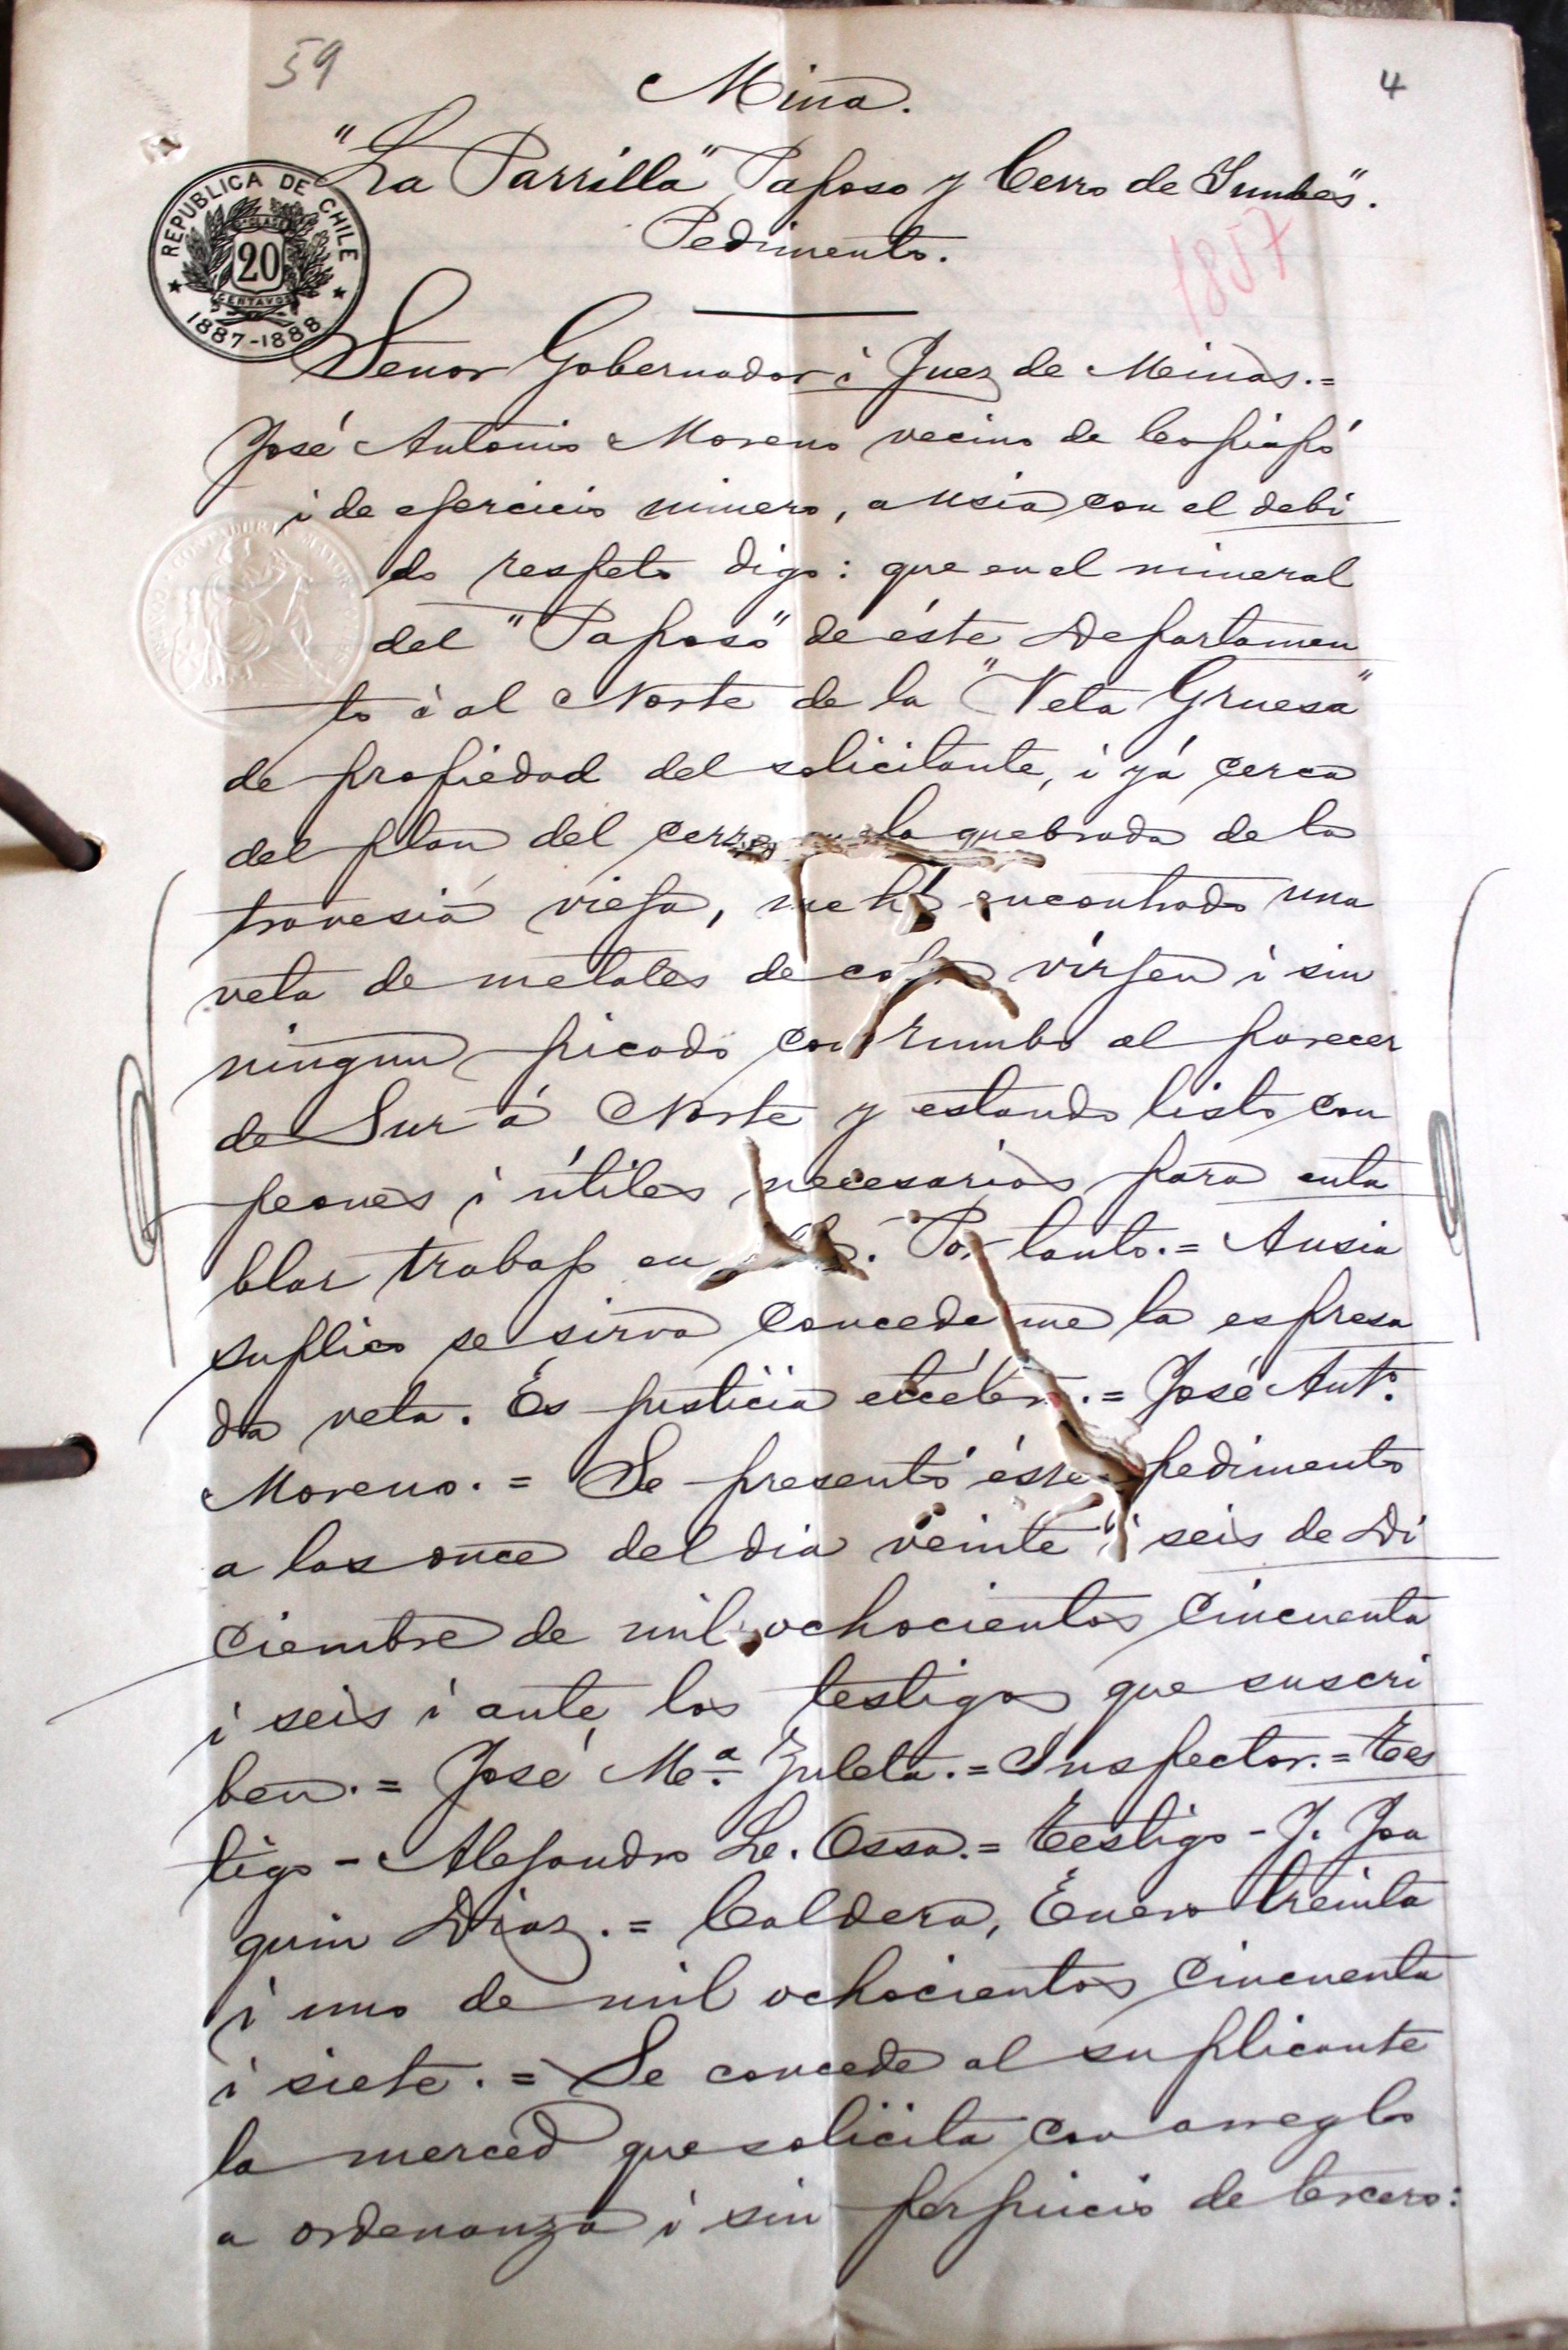 59
4
Mina.
"La Parrilla" Paposo y Cerro de
Pedimento.
1857
REPUBLICA DE CHILE
20
CENTAVOS
1887-1888
Señor Gobernador i Juez de Minas.=
José Antonio Moreno vecino de Copiapó
i de ejercicio minero, a usia con el debi
do respeto digo: que en el mineral
del "Paposo" de éste Departamen
to i al Norte de la "Veta Gruesa"
de propiedad del solicitante, i yá cerca
del plan del cerro la quebrada de la
travesia vieja, me hé encontrado una
veta de metales de cobre vírjen i sin
ningun picado con rumbo al parecer
de Sur á Norte y estando listo con
peones i útiles necesarios para enta
blar trabajo en. Por tanto.= A usia
suplico se sirva concederme la espresa
da veta. Es justicia etcétera.= José Ant.º
Moreno.= Se presentó éste pedimento
a las once del dia veinte i seis de Di
ciembre de mil ochocientos cincuenta
i seis i ante los testigos que suscri
ben.= José M.ª Zuleta.= Inspector.= Tes
tigo - Alejandro L. Ossa.= Testigo - J. Joa
quin Diaz.= Caldera, Enero treinta
i uno de mil ochocientos cincuenta
i siete.= Se concede al suplicante
la merced que solicita con arreglo
a ordenanza i sin perjuicio de tercero: